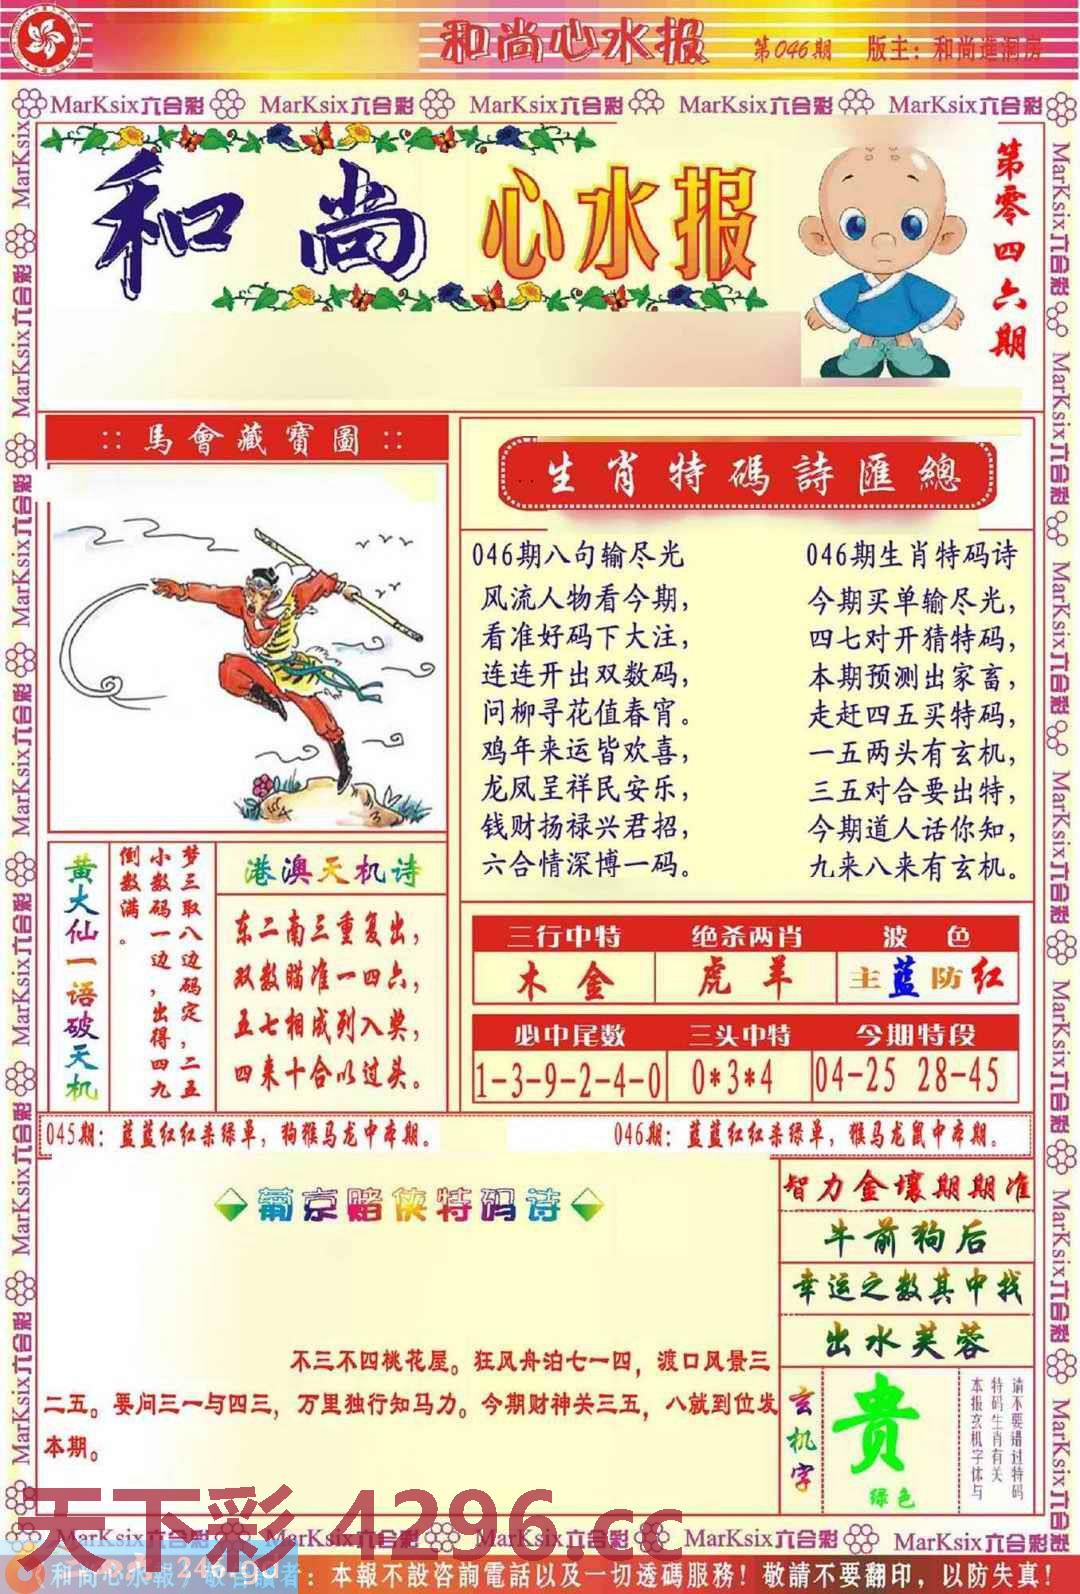 和尚心水报
第046期
版主：和尚進洞房
MarKsix六合彩 MarKsix六合彩 MarKsix六合彩 MarKsix六合彩 MarKsix六合彩
和尚心水报
第零四六期
::馬會藏寶圖::
生肖特碼詩匯總
046期八句输尽光
风流人物看今期，
看准好码下大注，
连连开出双数码，
问柳寻花值春宵。
鸡年来运皆欢喜，
龙凤呈祥民安乐，
钱财扬禄兴君招，
六合情深博一码。
046期生肖特码诗
今期买单输尽光，
四七对开猜特码，
本期预测出家畜，
走赶四五买特码，
一五两头有玄机，
三五对合要出特，
今期道人话你知，
九来八来有玄机。
黄大仙一语破天机
梦三取八边码定，二五
小数码一边，出得四九
倒数满。
港澳天机诗
东二南三重复出，
双数瞄准一四六，
五七相成列入奖，
四来十合以过头。
三行中特 绝杀两肖 波色
木金 虎羊 主蓝防红
必中尾数 三头中特 今期特段
1-3-9-2-4-0 0*3*4 04-25 28-45
045期：蓝蓝红红杀绿单，狗猴马龙中本期。
046期：蓝蓝红红杀绿单，猴马龙鼠中本期。
葡京赌侠特码诗
不三不四桃花屋。狂风舟泊七一四，渡口风景三
二五。要问三一与四三，万里独行知马力。今期财神关三五，八就到位发
本期。
智力金壤期期准
牛前狗后
幸运之数其中找
出水芙蓉
玄机字
贵
绿色
请不要错过特码
特码生肖有关
本报玄机字体与
天下彩 4296.cc
MarKsix六合彩 MarKsix六合彩 MarKsix六合彩 MarKsix六合彩 MarKsix六合彩
246.gd
和尚心水報 敬告讀者：本報不設咨詢電話以及一切透碼服務！敬請不要翻印，以防失真！